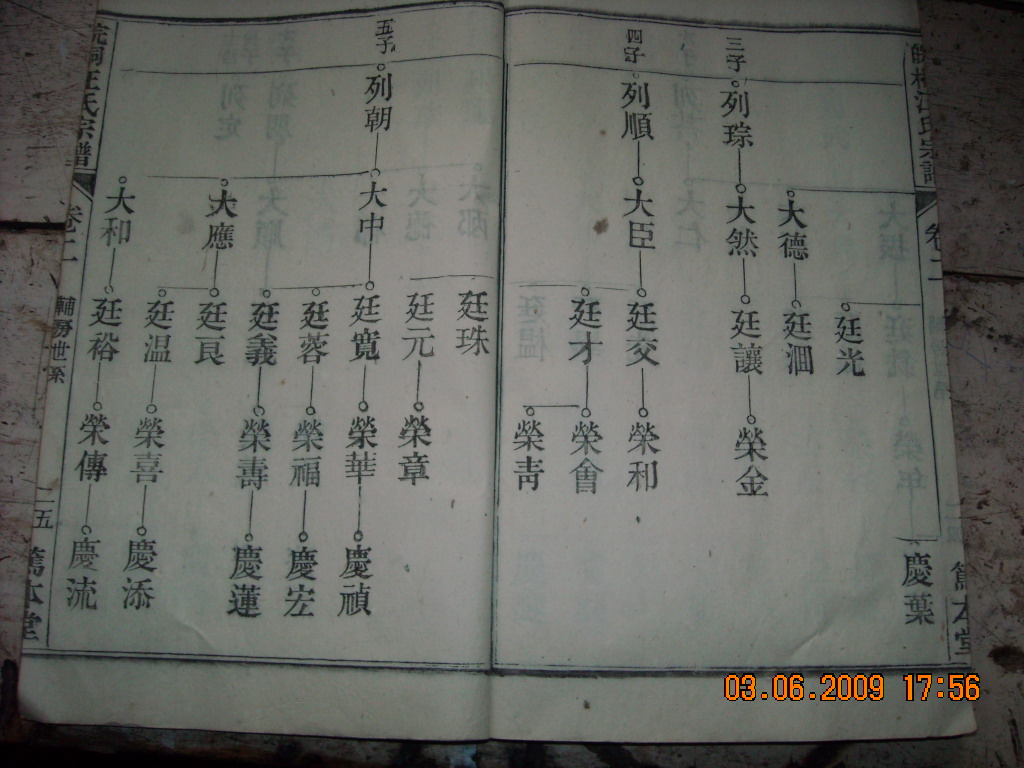 卷二
篤本堂
慶葉
廷光
大德
廷洄
三子
列琮
大然
廷讓
榮金
四子
列順
大臣
廷交
榮和
廷才
榮會
榮靑
廷珠
廷元
榮章
五子
列朝
大中
廷寬
榮華
慶禎
廷蓉
榮福
慶宏
廷義
榮壽
慶蓮
大應
廷良
廷温
榮喜
慶添
大和
廷裕
榮傳
慶流
汪氏宗譜
卷二
輔房世系
五
篤本堂
03.06.2009 17:56